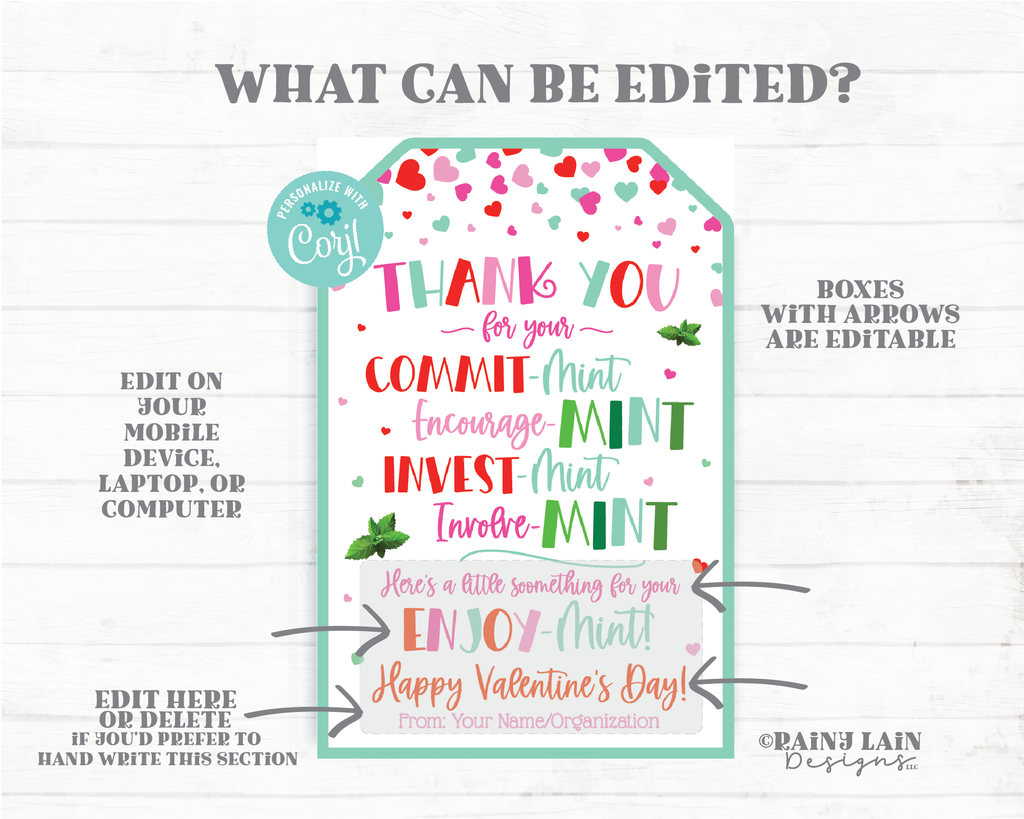 WHAT CAN BE EDiTED?
PERSONALIZE WITH
Corj!
THANK YOU
~ for your ~
COMMIT-Mint
Encourage-MINT
INVEST-Mint
Involve-MINT
Here's a little soomething for your
ENJOY-Mint!
Happy Valentine's Day!
From: Your Name/Organization
EDIT ON
YOUR
MOBiLE
DEViCE,
LAPTOP, OR
COMPUTER
BOXES
WiTH ARROWS
ARE EDiTABLE
EDIT HERE
OR DELETE
iF YOU'D PREFER TO
HAND WRiTE THiS SECTiON
©RAiNY LAiN
Designs LLC